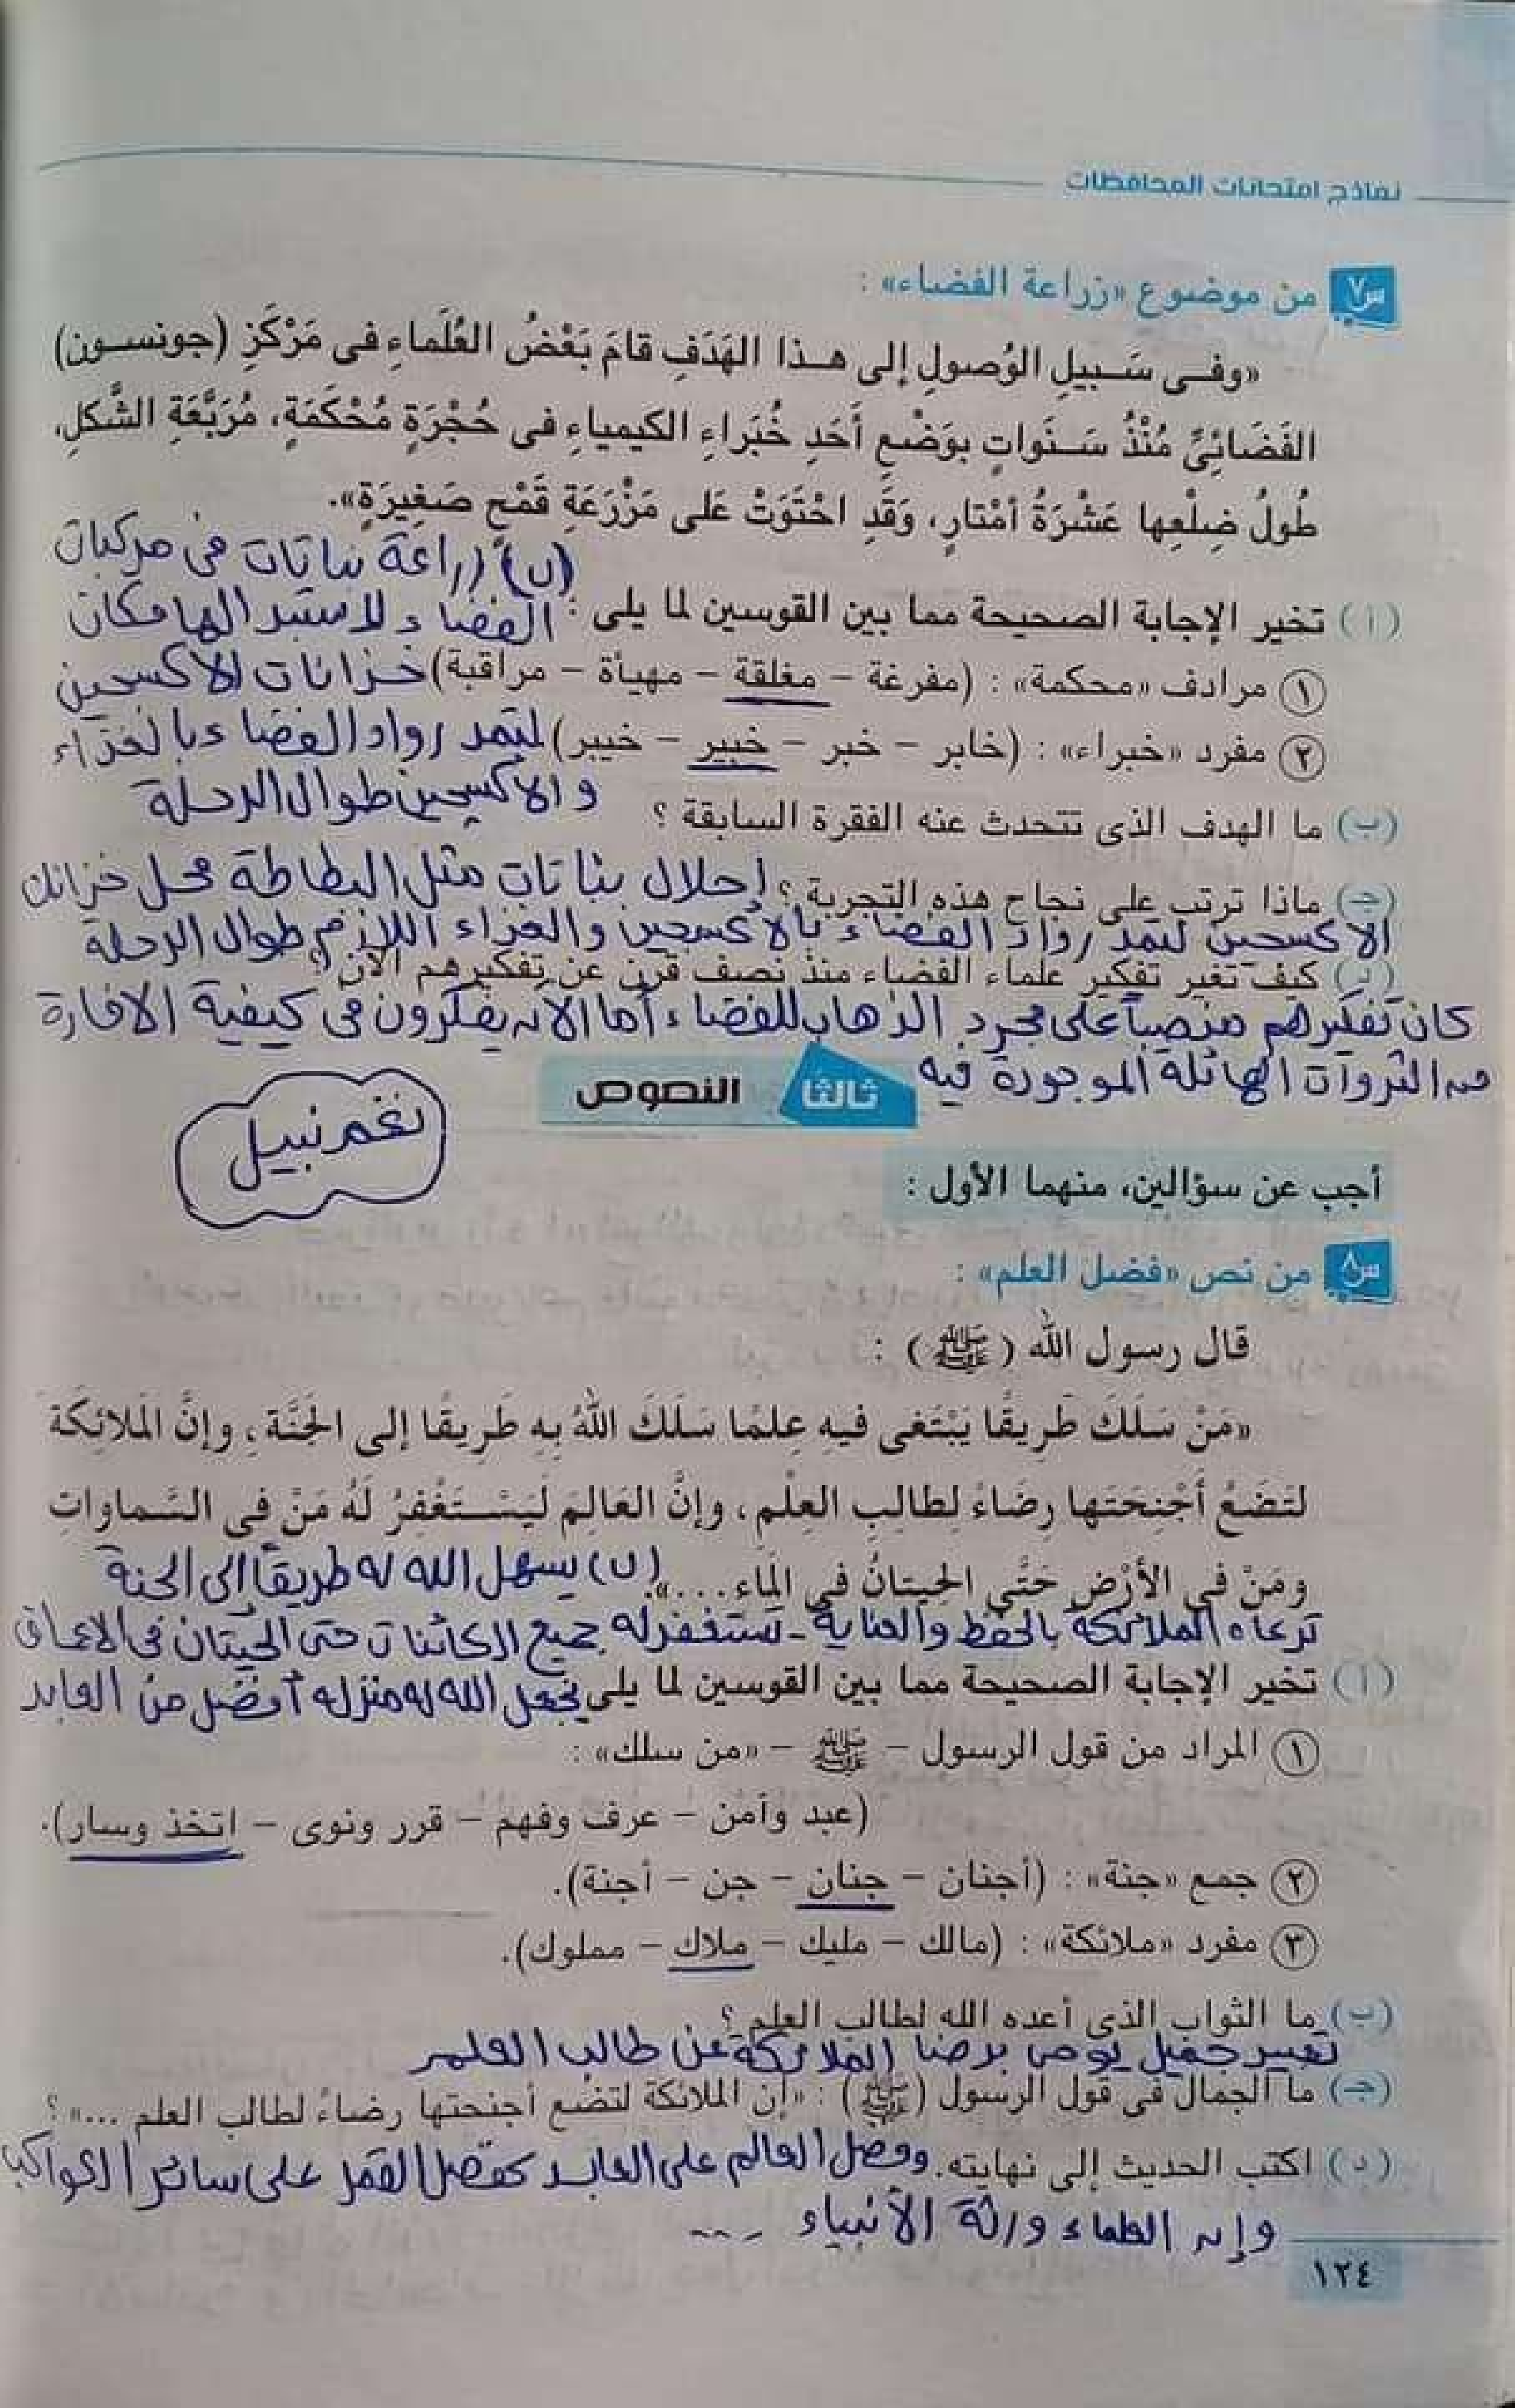 نماذج امتحانات المحافظات
س٧ من موضوع «زراعة الفضاء» :
«وفى سَبيلِ الوُصولِ إلى هذا الهَدَفِ قامَ بَعْضُ العُلَماءِ فى مَرْكَزِ (جونسون)
الفَضَائِىِّ مُنْذُ سَنَواتٍ بوَضْعِ أَحَدِ خُبَراءِ الكيمياءِ فى حُجْرَةٍ مُحْكَمَةٍ، مُرَبَّعَةِ الشَّكلِ،
طُولُ ضِلْعِها عَشْرَةُ أمْتارٍ، وَقَدِ احْتَوَتْ عَلى مَزْرَعَةِ قَمْحٍ صَغِيرَةٍ».
(ب) زراعة نباتات فى مركبات
(أ) تخير الإجابة الصحيحة مما بين القوسين لما يلى : الفضاء لاستبدالها مكان
١ مرادف «محكمة» : (مفرغة – مغلقة – مهيأة – مراقبة) خزانات الأكسجين
٢ مفرد «خبراء» : (خابر – خبر – خبير – خيبر) لتمد رواد الفضاء بالغذاء
والأكسجين طوال الرحلة
(ب) ما الهدف الذى تتحدث عنه الفقرة السابقة ؟
(جـ) ماذا ترتب على نجاح هذه التجربة ؟ إحلال نباتات مثل البطاطة محل خزانات
الأكسجين لتمد رواد الفضاء بالأكسجين والغذاء اللازم طوال الرحلة
(د) كيف تغير تفكير علماء الفضاء منذ نصف قرن عن تفكيرهم الآن ؟
كان تفكيرهم منصباً على مجرد الذهاب للفضاء أما الآن يفكرون فى كيفية الافادة
من الثروات الهائلة الموجودة فيه
ثالثا النصوص
نغم نبيل
أجب عن سؤالين، منهما الأول :
س٨ من نص «فضل العلم» :
قال رسول الله (ﷺ) :
«مَنْ سَلَكَ طَريقًا يَبْتَغى فيهِ عِلمًا سَلَكَ اللهُ بِهِ طَرِيقًا إلى الجَنَّة، وإنَّ المَلائِكَةَ
لتَضَعُ أَجْنِحَتَها رِضَاءً لطالِبِ العِلْمِ، وإنَّ العَالِمَ لَيَسْتَغْفِرُ لَهُ مَنْ فى السَّماواتِ
ومَنْ فى الأَرْضِ حَتَّى الحِيتانُ فى المَاءِ...». (ب) يسهل الله له طريقاً إلى الجنة
ترعاه الملائكة بالحفظ والعناية - تستغفر له جميع الكائنات حتى الحيتان فى الاعماق
(أ) تخير الإجابة الصحيحة مما بين القوسين لما يلى يجعل الله له منزله أفضل من العابد
١ المراد من قول الرسول – ﷺ – «من سلك» :
(عبد وآمن – عرف وفهم – قرر ونوى – اتخذ وسار).
٢ جمع «جنة» : (أجنان – جنان – جن – أجنة).
٣ مفرد «ملائكة» : (مالك – مليك – ملاك – مملوك).
(ب) ما الثواب الذى أعده الله لطالب العلم ؟
تعبير جميل يوحى برضا الملائكة عن طالب العلم
(جـ) ما الجمال فى قول الرسول (ﷺ) : «إن الملائكة لتضع أجنحتها رضاءً لطالب العلم ...» ؟
(د) اكتب الحديث إلى نهايته. وفضل العالم على العابد كفضل القمر على سائر الكواكب
وإن العلماء ورثة الأنبياء ....
١٢٤